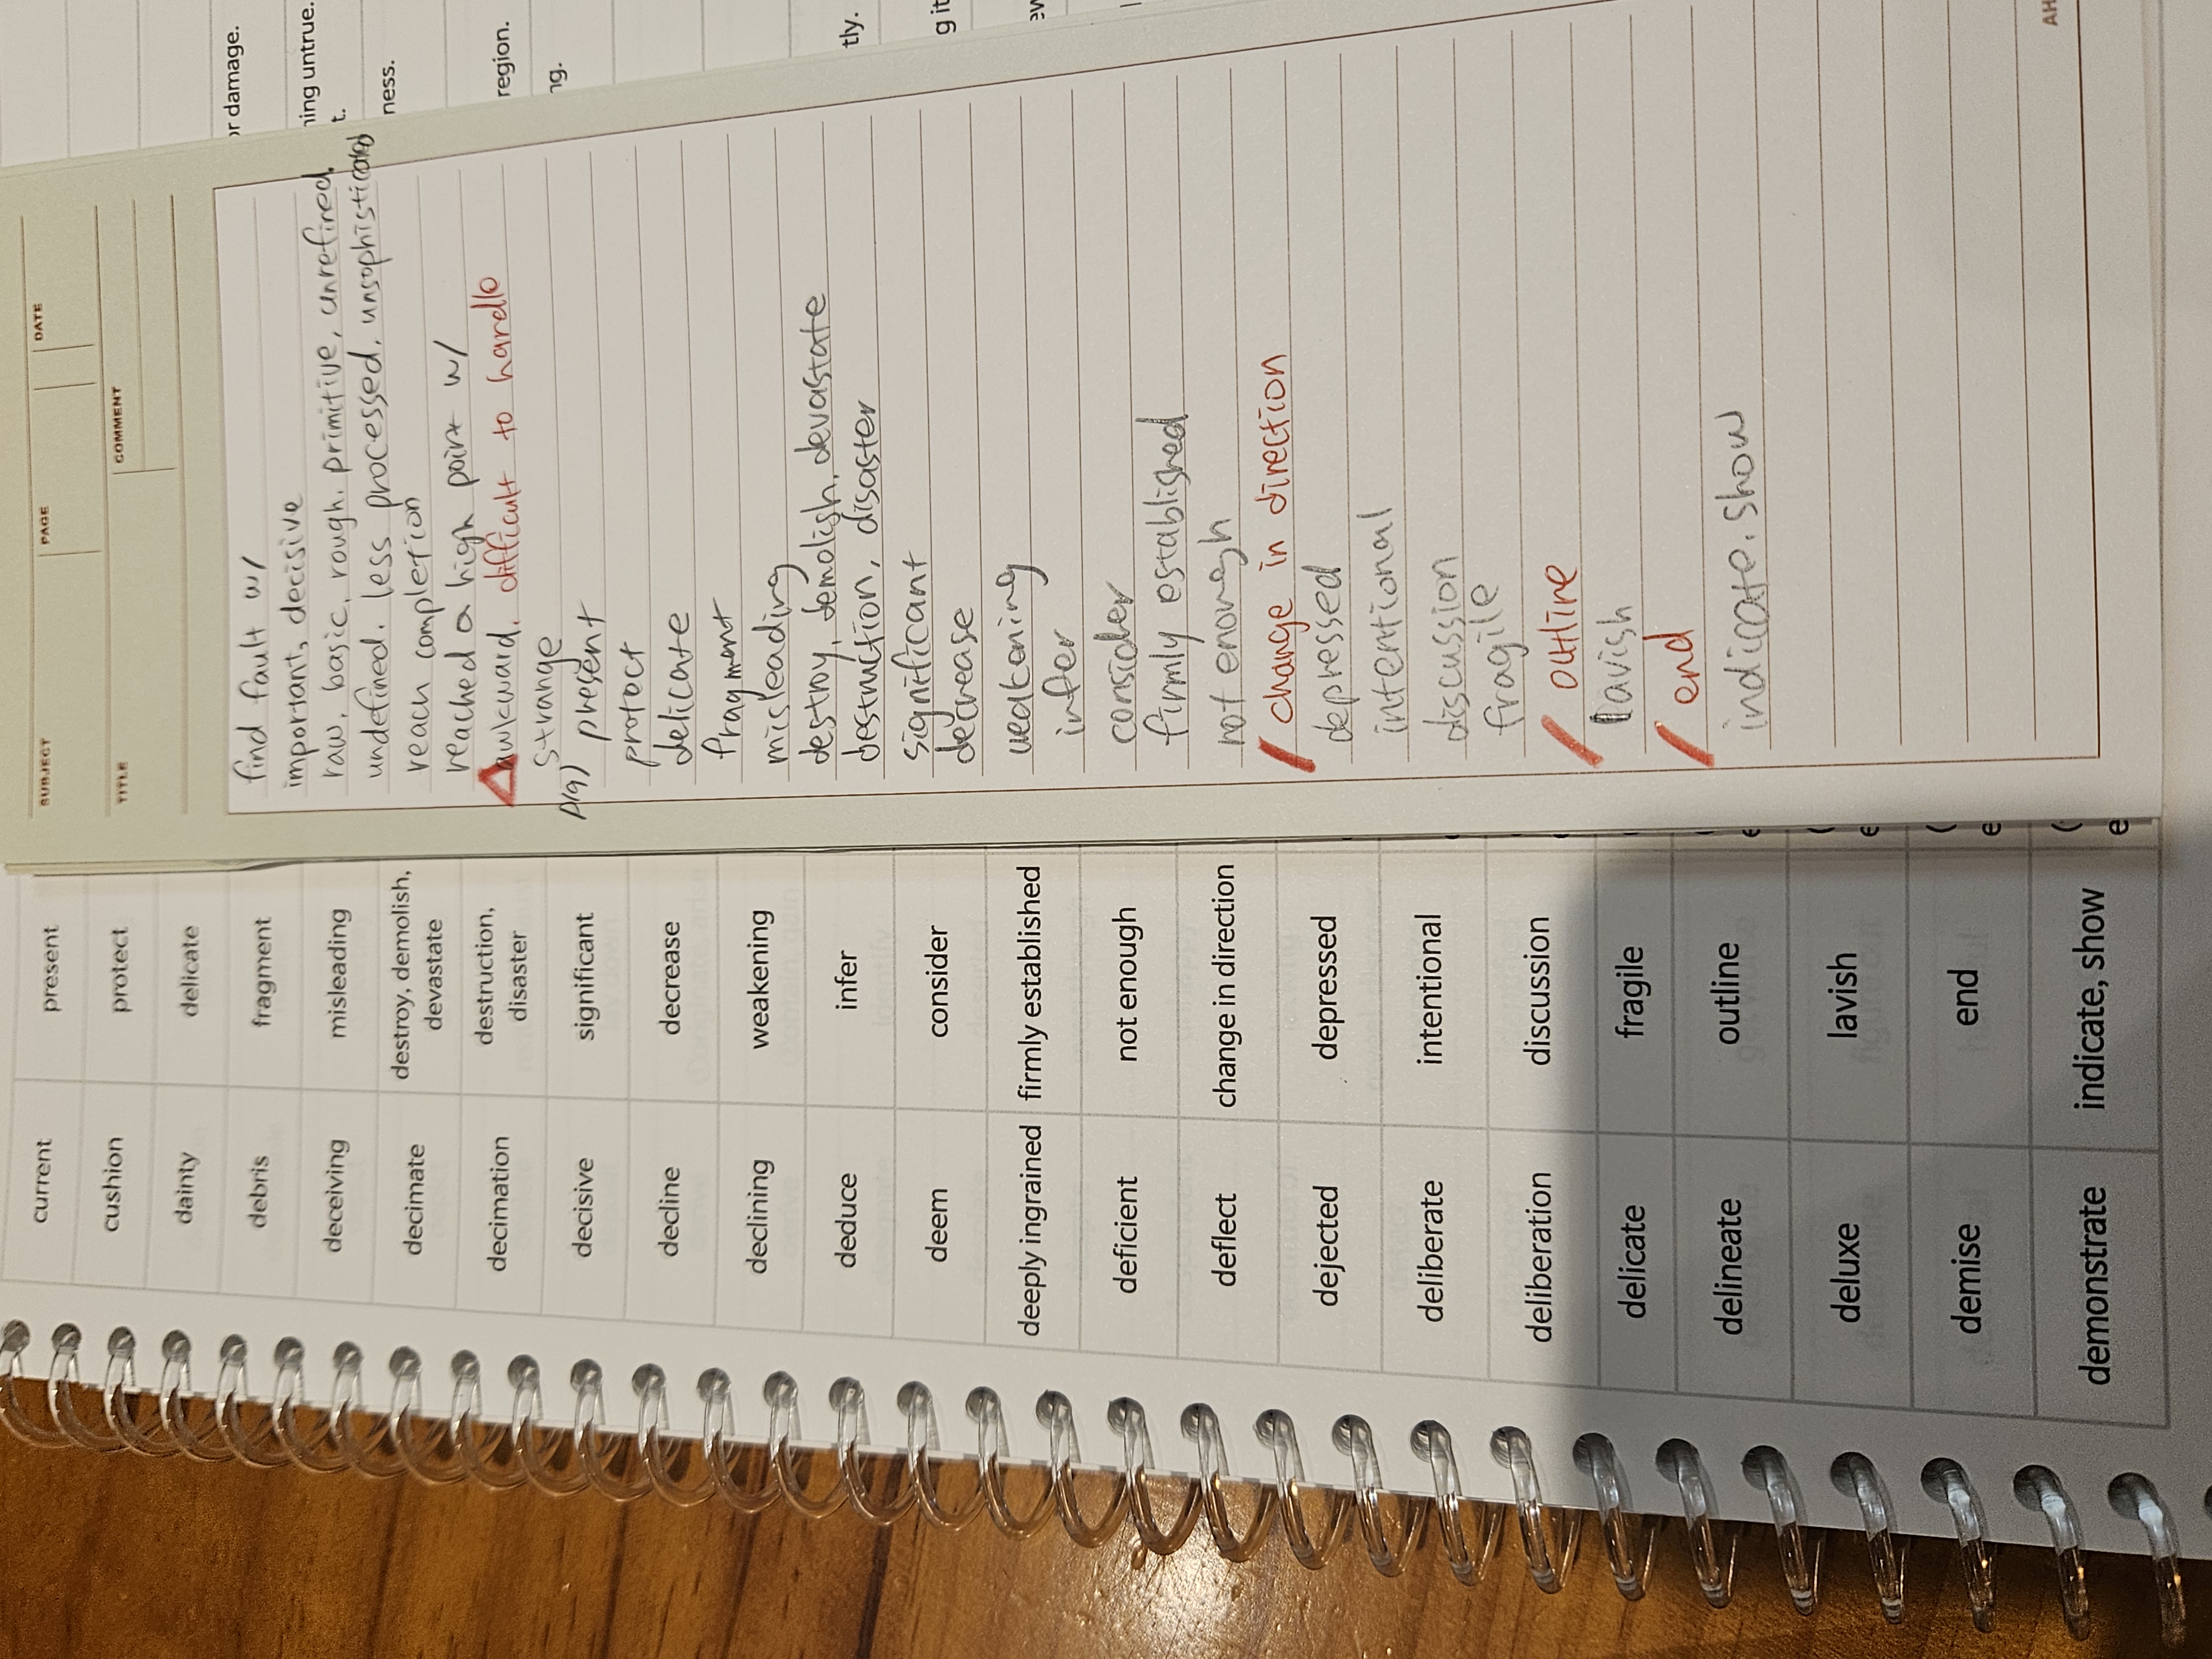 or damage.
ning untrue.
t.
ness.
region.
ng.
tly.
g it
SUBJECT PAGE DATE
TITLE COMMENT
find fault w/
important, decisive
raw, basic, rough, primitive, unrefined,
undefined, less processed, unsophisticated
reach completion
reached a high point w/
awkward, difficult to handle
strange
p19) present
protect
delicate
fragment
misleading
destroy, demolish, devastate
destruction, disaster
significant
decrease
weakening
infer
consider
firmly established
not enough
/ change in direction
depressed
intentional
discussion
fragile
/ outline
lavish
/ end
indicate, show
current present
cushion protect
dainty delicate
debris fragment
deceiving misleading
decimate destroy, demolish,
devastate
decimation destruction,
disaster
decisive significant
decline decrease
declining weakening
deduce infer
deem consider
deeply ingrained firmly established
deficient not enough
deflect change in direction
dejected depressed
deliberate intentional
deliberation discussion
delicate fragile
delineate outline
deluxe lavish
demise end
demonstrate indicate, show